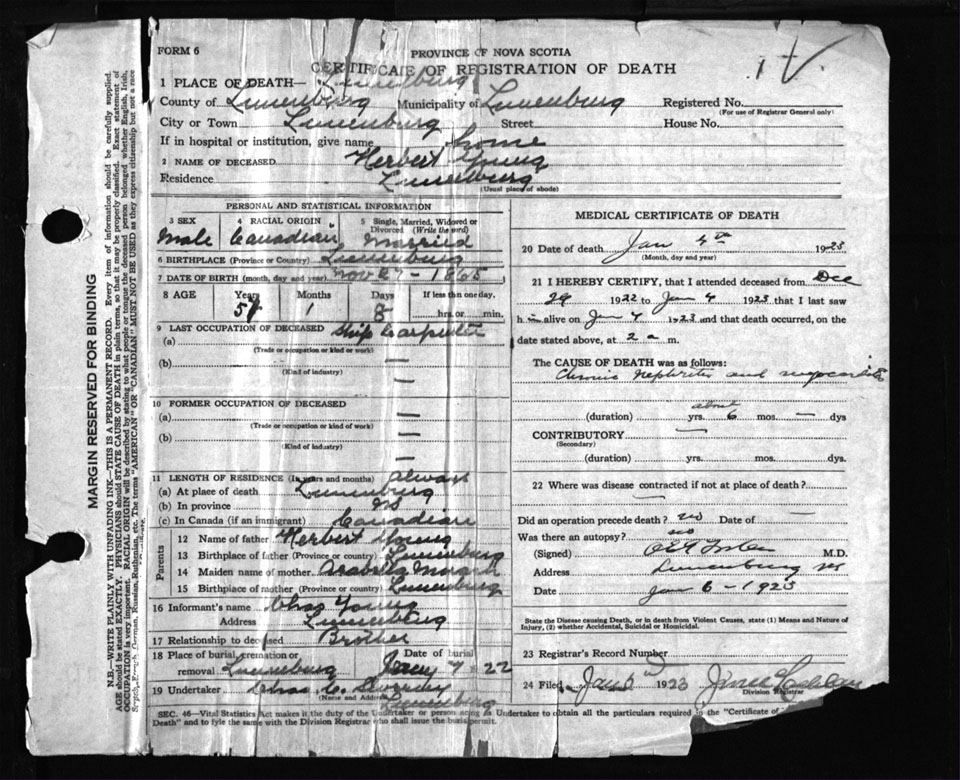 FORM 6
PROVINCE OF NOVA SCOTIA
CERTIFICATE OF REGISTRATION OF DEATH
1 PLACE OF DEATH— Lunenburg
County of Lunenburg Municipality of Lunenburg Registered No.
(For use of Registrar General only)
City or Town Lunenburg Street House No.
If in hospital or institution, give name home
2 NAME OF DECEASED Herbert Young
Residence Lunenburg
(Usual place of abode)
PERSONAL AND STATISTICAL INFORMATION
3 SEX 4 RACIAL ORIGIN 5 Single, Married, Widowed or Divorced (Write the word)
Male Canadian Married
6 BIRTHPLACE (Province or Country) Lunenburg
7 DATE OF BIRTH (month, day and year) Nov 27 - 1865
8 AGE Years Months Days If less than one day,
57 1 8 hrs. or min.
9 LAST OCCUPATION OF DECEASED Ship Carpenter
(a)
(Trade or occupation or kind of work)
(b) —
(Kind of industry)
—
10 FORMER OCCUPATION OF DECEASED
(a) —
(Trade or occupation or kind of work)
(b) —
(Kind of industry)
—
11 LENGTH OF RESIDENCE (In years and months) always
(a) At place of death Lunenburg
(b) In province NS
(c) In Canada (if an immigrant) Canadian
Parents
12 Name of father Herbert Young
13 Birthplace of father (Province or country) Lunenburg
14 Maiden name of mother Arabella Morash
15 Birthplace of mother (Province or country) Lunenburg
16 Informant's name Chas Young
Address Lunenburg
17 Relationship to deceased Brother
18 Place of burial, cremation or Date of burial
removal Lunenburg 7 22
19 Undertaker Chas C.
(Name and Address)
Lunenburg
MEDICAL CERTIFICATE OF DEATH
20 Date of death Jan 4th 1923
(Month, day and year)
21 I HEREBY CERTIFY, that I attended deceased from Dec
29 1922 to Jan 4 1923 that I last saw
h im alive on Jan 4 1923 and that death occurred, on the
date stated above, at 2 a m.
The CAUSE OF DEATH was as follows:
Chronic Nephritis and myocarditis
about
(duration) yrs. 6 mos. — dys
CONTRIBUTORY —
(Secondary)
(duration) yrs. mos. dys.
22 Where was disease contracted if not at place of death?
—
Did an operation precede death? no Date of —
Was there an autopsy? no
(Signed) M.D.
Address Lunenburg NS
Date Jan 6 - 1923
State the Disease causing Death, or in death from Violent Causes, state (1) Means and Nature of
Injury, (2) whether Accidental, Suicidal or Homicidal.
23 Registrar's Record Number
24 Filed Jan 5 1923
Division Registrar
SEC. 46—Vital Statistics Act makes it the duty of the Undertaker or person acting as Undertaker to obtain all the particulars required in the "Certificate of
Death" and to file the same with the Division Registrar who shall issue the burial permit.
MARGIN RESERVED FOR BINDING
N.B.—WRITE PLAINLY WITH UNFADING INK—THIS IS A PERMANENT RECORD. Every item of information should be carefully supplied.
AGE should be stated EXACTLY. PHYSICIANS should STATE CAUSE OF DEATH in plain terms, so that it may be properly classified. Exact statement of
OCCUPATION is very important. RACIAL ORIGIN will be described by stating to what people or tongue the deceased person belonged whether English, Irish,
Scotch, French, German, Russian, Ruthenian, etc. The terms "AMERICAN" OR "CANADIAN" MUST NOT BE USED as they express citizenship but not a race